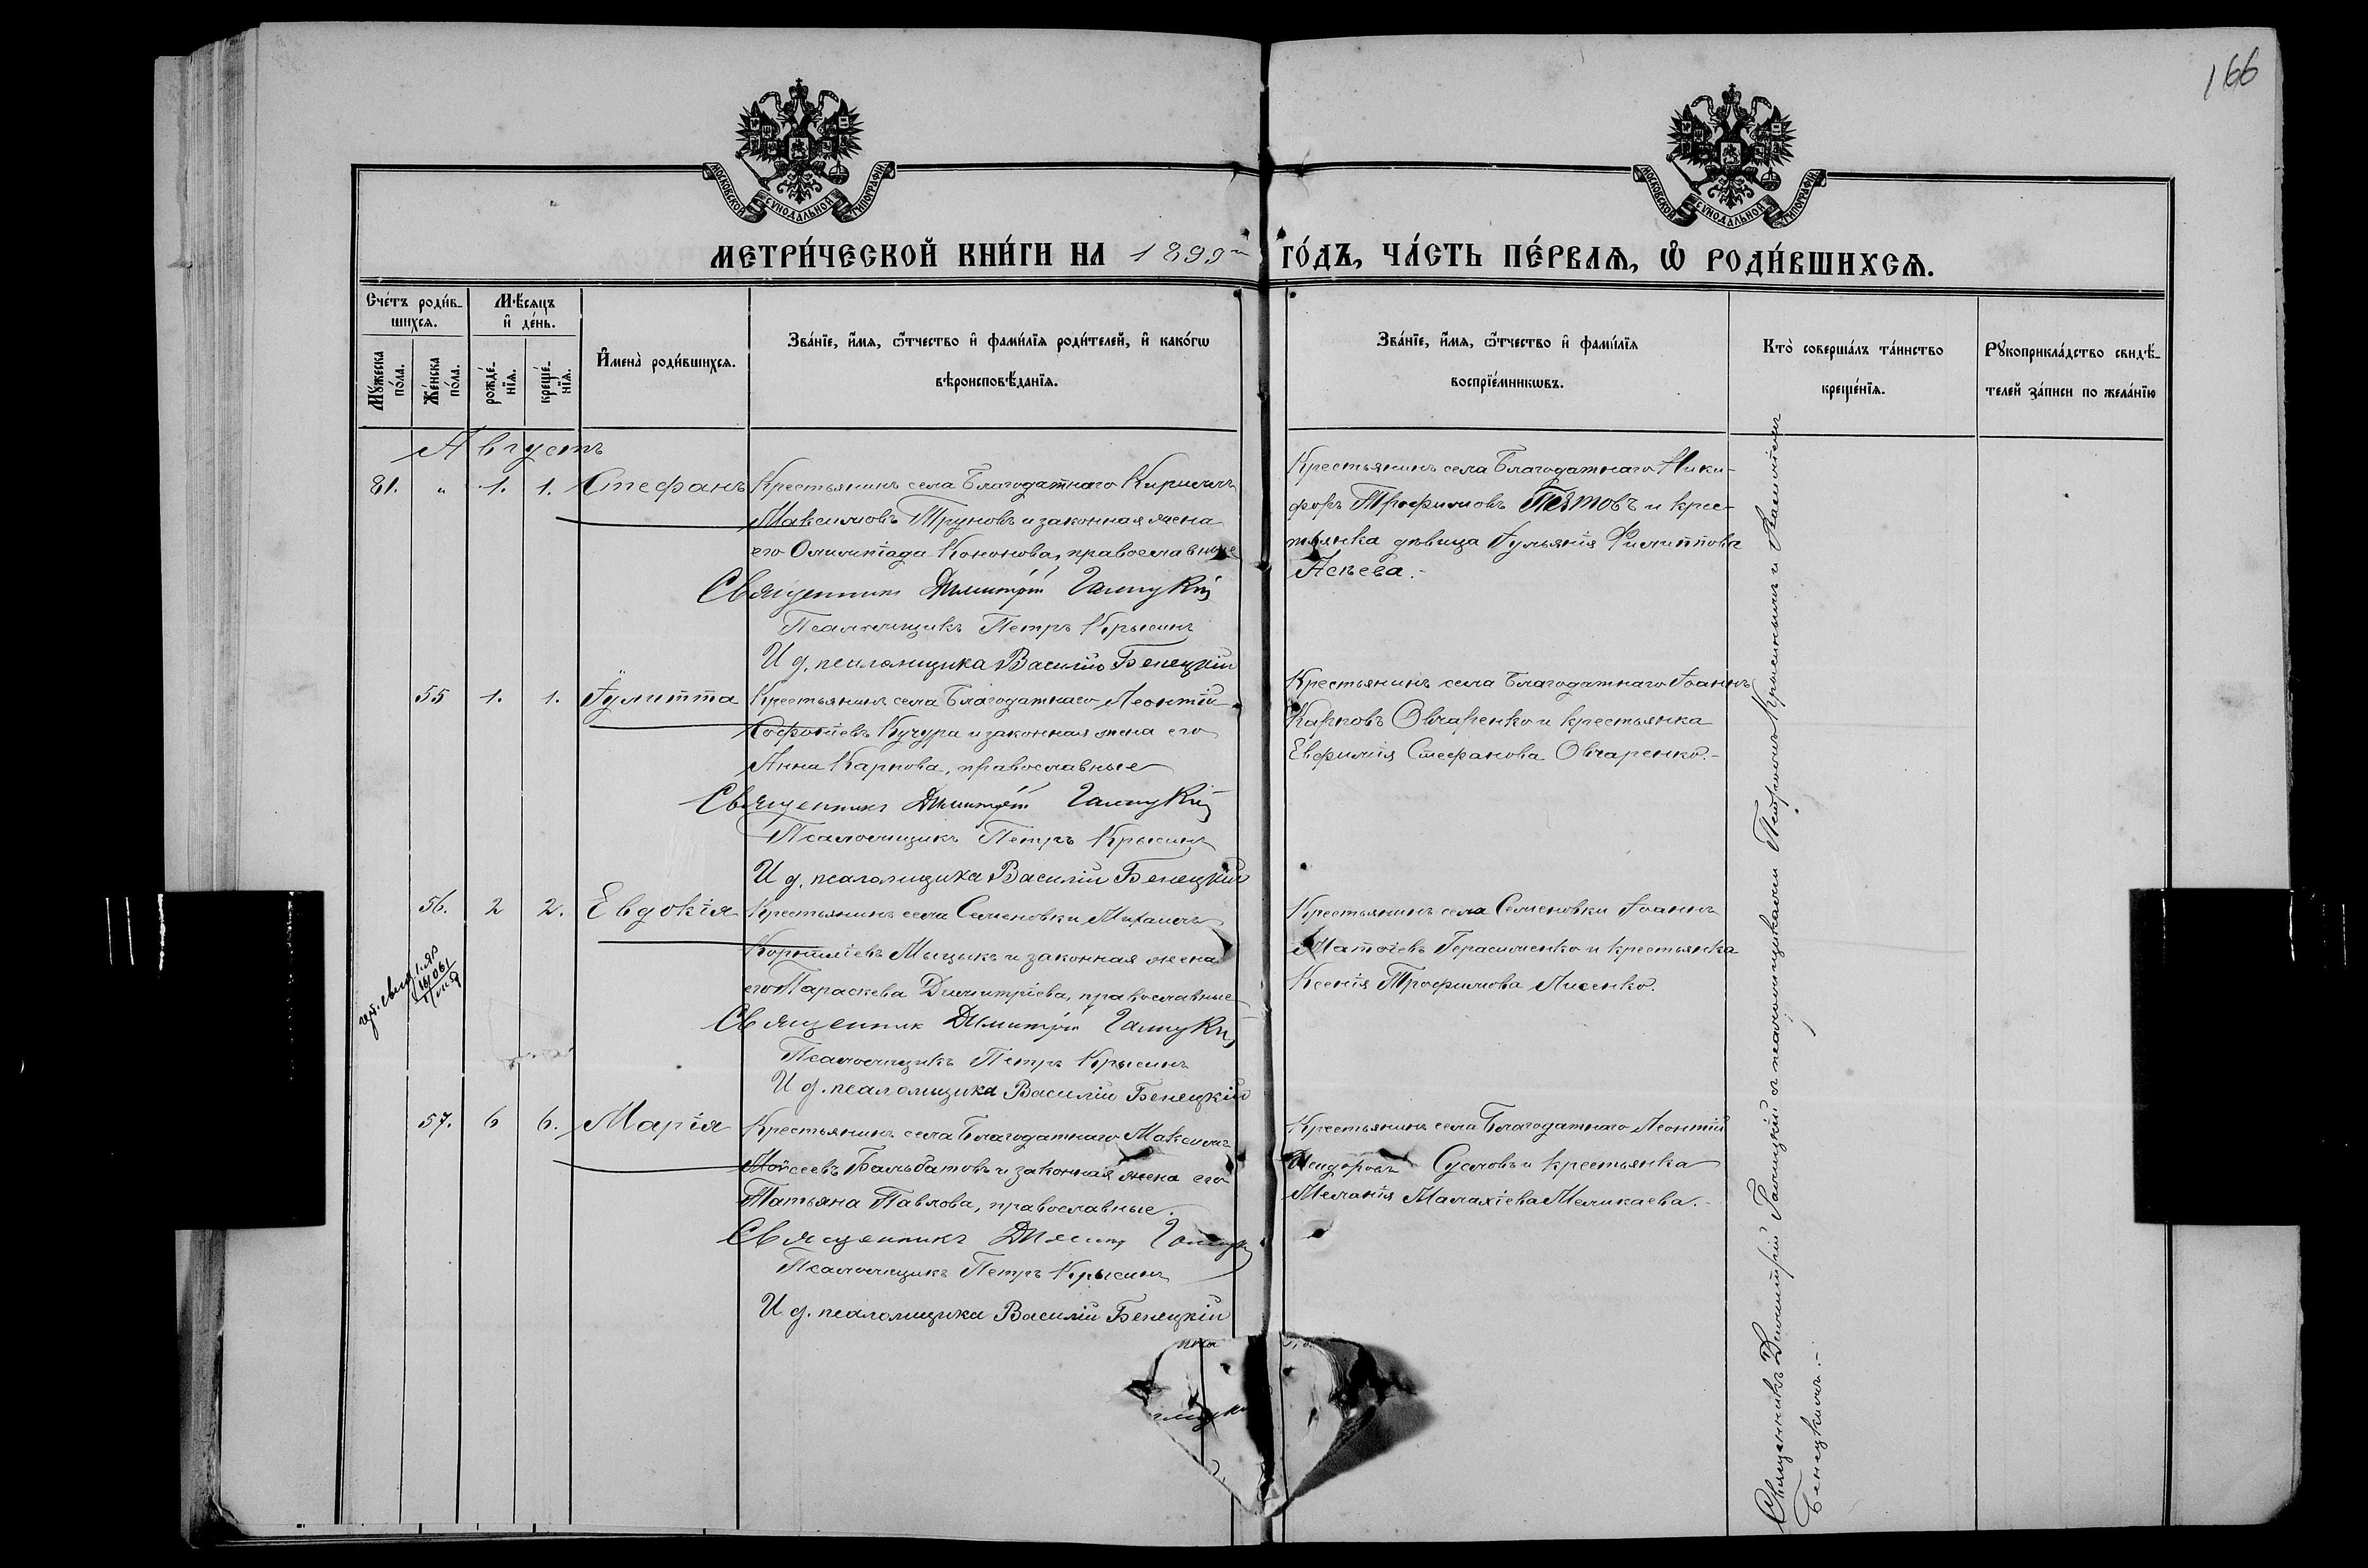 166
МОСКОВСКОЙ СѴНОДАЛЬНОЙ ТИПОГРАФІИ
МОСКОВСКОЙ СѴНОДАЛЬНОЙ ТИПОГРАФІИ
МЕТРИ́ЧЕСКОЙ КНИ́ГИ НА 1899й ГО́ДЪ, ЧА́СТЬ ПЕ́РВАѦ, Ѽ РОДИ́ВШИХСѦ.
Сче́тъ роди́в-
шихсѧ.
Мꙋ́жеска по́ла.
Же́нска по́ла.
Мѣ́сяцъ
и҆ де́нь.
рожде́-
нїѧ.
креще́-
нїѧ.
И҆мена̀ роди́вшихсѧ.
Зва́нїе, и҆́мѧ, ѻ҆́тчество и҆ фами́лїѧ роди́телей, и҆ како́гѡ
вѣроисповѣ́данїѧ.
Зва́нїе, и҆́мѧ, ѻ҆́тчество и҆ фами́лїѧ
воспрїе́мникѡвъ.
Кто̀ соверша́лъ та́инство
креще́нїѧ.
Рꙋкоприкла́дство свидѣ́-
телей за́писи по жела́нїю
Августъ
81. " 1. 1. Стефанъ
Крестьянинъ села Благодатнаго Кириллъ
Максимовъ Труновъ и законная жена
его Олимпіада Кононова, православные
Священникъ Димитрій Галицкій
Псаломщикъ Петръ Крысинъ
И д. псаломщика Василій Бенецкій
Крестьянинъ села Благодатнаго Ники-
форъ Трофимовъ и крес-
тьянка дѣвица Іуліанія Филиппова
Асѣева.-
55 1. 1. Іулитта
Крестьянинъ села Благодатнаго Леонтій
Софоніевъ Кучура и законная жена его
Анна Карпова, православные
Священникъ Димитрій Галицкій
Псаломщикъ Петръ Крысинъ
И д. псаломщика Василій Бенецкій
Крестьянинъ села Благодатнаго Іоаннъ
Карповъ Овчаренко и крестьянка
Евфимія Стефанова Овчаренко.-
56. 2 2. Евдокія
Крестьянинъ села Семеновки Михаилъ
Корниліевъ Мыцыкъ и законная жена
его Параскева Димитріева, православные
Священник Димитрій Галицкій
Псаломщикъ Петръ Крысинъ
И д. псаломщика Василій Бенецкій
Крестьянинъ села Семеновки Іоаннъ
Герасименко и крестьянка
Ксенія Трофимова Лисенко.
57. 6 6. Марія
Крестьянинъ села Благодатнаго Максимъ
Моѵсеевъ Бальбатовъ и законная жена его
Татьяна Павлова, православные.
Священникъ Димитр Галицкій
Псаломщикъ Петръ Крысинъ
И д. псаломщика Василій Бенецкій
Крестьянинъ села Благодатнаго Леонтій
Исидоровъ Сусловъ и крестьянка
Меланія Малахіева Меликаева.-
Священникъ Димитрій Галицкій съ псаломщиками Петромъ Крысинымъ и Василіемъ
Бенецкимъ.-